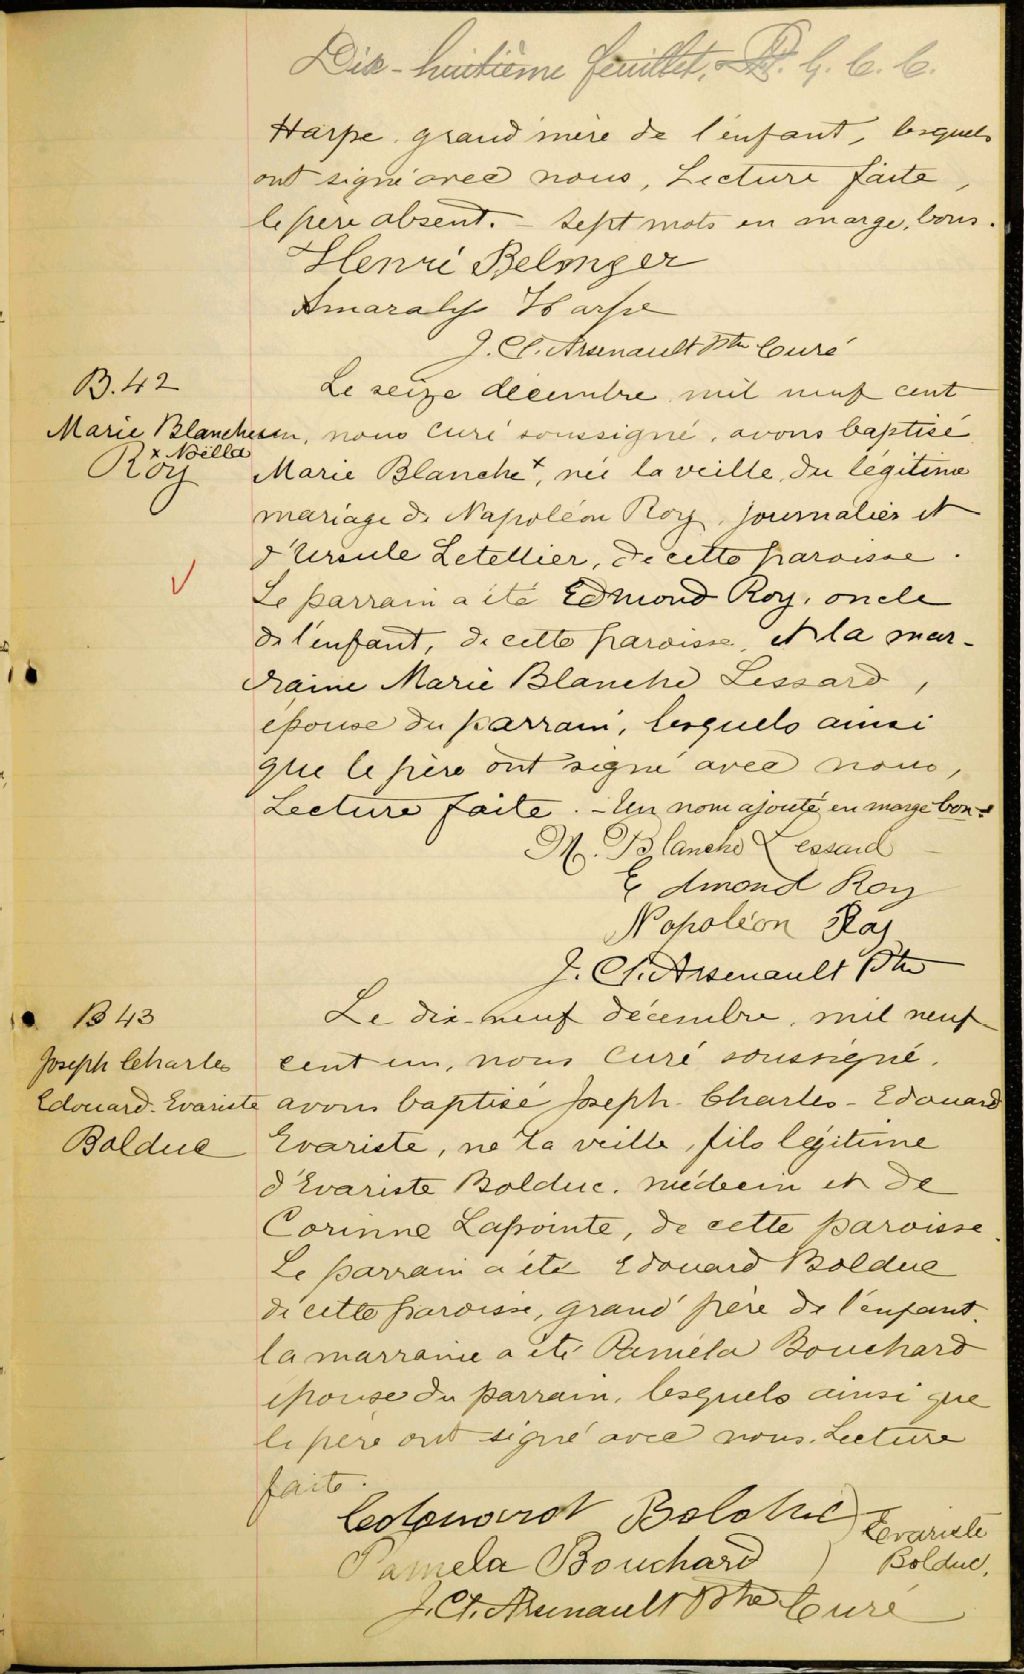 Dix-huitième feuillet, P. G. C. C.
Harpe grand'mère de l'enfant, lesquels
ont signé avec nous, Lecture faite,
le père absent. - Sept mots en marge, bons.
Henri Belonger
Amaralys Harpe
J. Cl. Arsenault Ptre Curé
B. 42
Marie Blanche
x Noëlla
Roy
Le seize décembre mil neuf cent
un, nous curé soussigné, avons baptisé
Marie Blanche x, née la veille, du légitime
mariage de Napoléon Roy, journalier et
d'Ursule Letellier, de cette paroisse.
Le parrain a été Edmond Roy, oncle
de l'enfant, de cette paroisse, et la mar-
raine Marie Blanche Lessard,
épouse du parrain, lesquels ainsi
que le père ont signé avec nous,
Lecture faite. - Un nom ajouté en marge bon.
M. Blanche Lessard
Edmond Roy
Napoléon Roy
J. Cl. Arsenault Ptre
B 43
Joseph Charles
Edouard. Evariste
Bolduc
Le dix-neuf décembre, mil neuf
cent un, nous curé soussigné,
avons baptisé Joseph-Charles-Edouard
Evariste, né la veille, fils légitime
d'Evariste Bolduc, médecin et de
Corinne Lapointe, de cette paroisse.
Le parrain a été Edouard Bolduc
de cette paroisse, grand'père de l'enfant,
la marraine a été Paméla Bouchard
épouse du parrain, lesquels ainsi que
le père ont signé avec nous. Lecture
faite.
Edouard Bolduc
Evariste
Bolduc,
Pamela Bouchard
J. Cl. Arsenault Ptre Curé